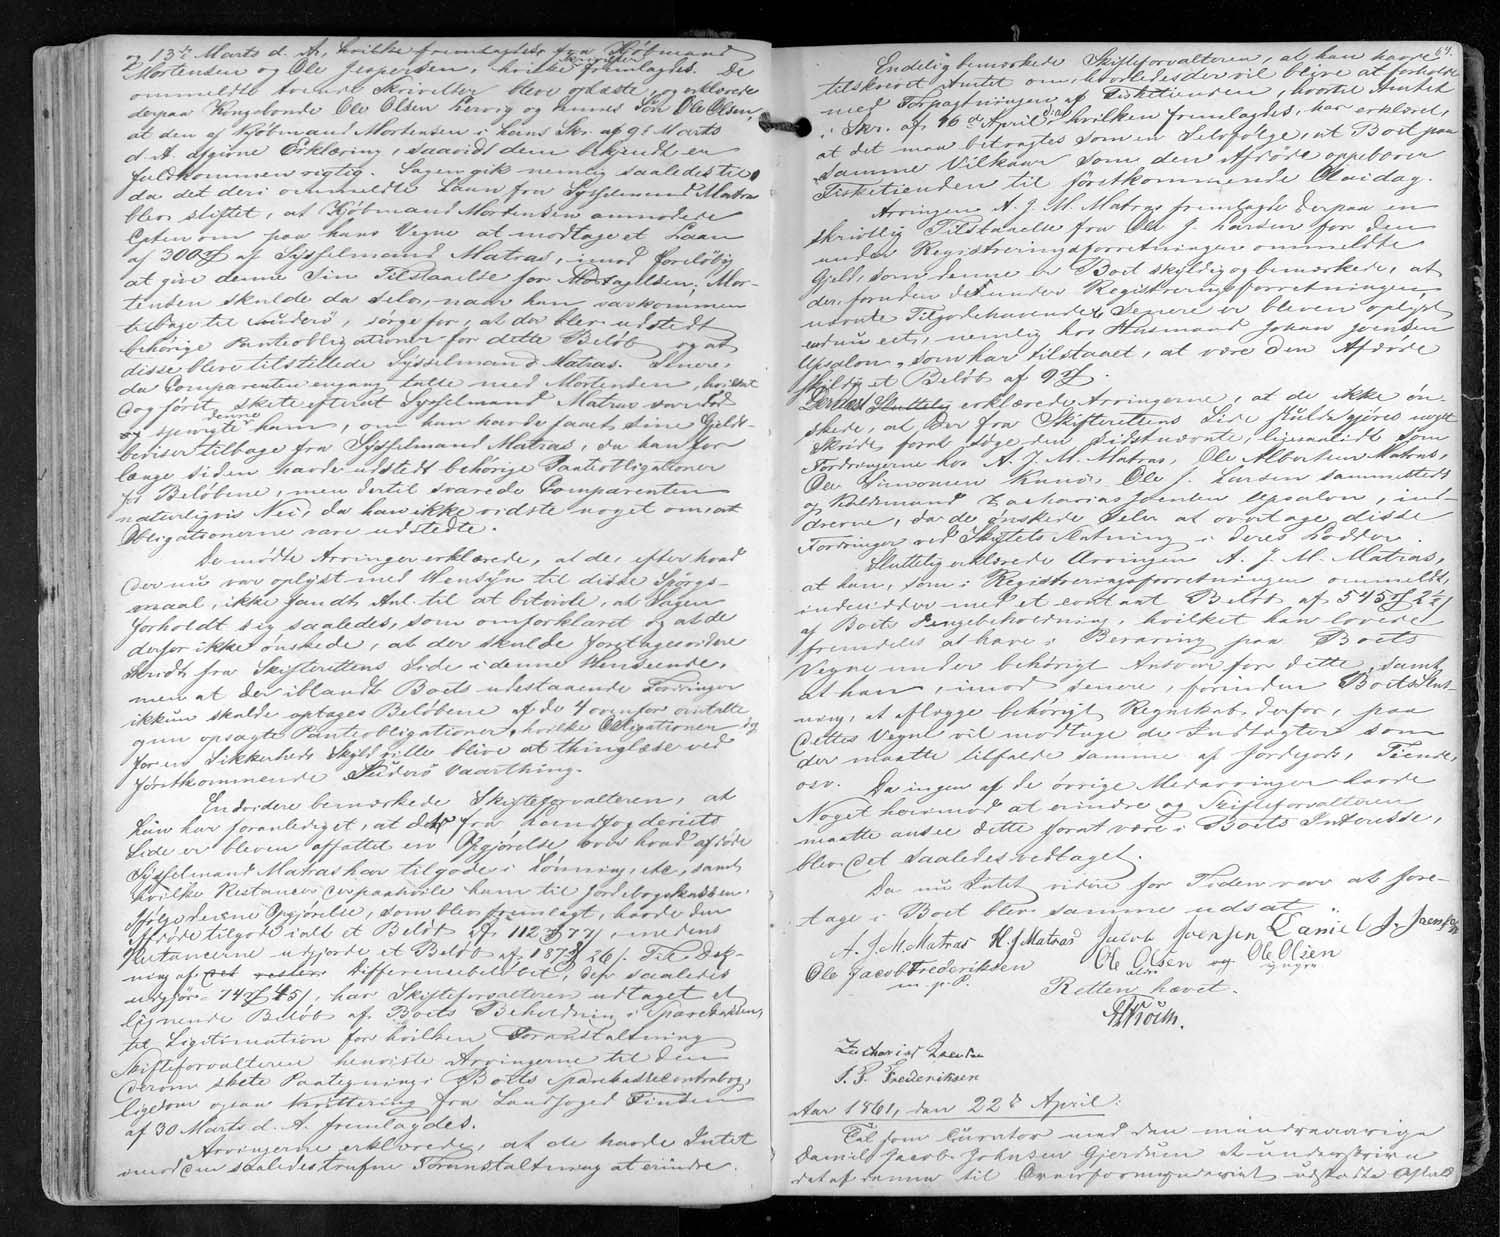 13de Marts d. A., hvilke fremlagdes fra Kjøbmand
Mortensen og Ole Jespersen, hvilke Skrivelser fremlagdes. De
ommeldte tvende Skrivelser bleve oplæste, og erklærede
derpaa Kongsbonde Ole Olsen og hannes Søn Ole Olsen,
at den af Kjøbmand Mortensen i hans Skr. af 9de Marts
d. A. afgivne Erklæring, saavidt dem bekjendt er
fuldkommen rigtig. Sagen gik nemlig saaledes til,
da det deri ommeldte Laan fra Sysselmand Matras
blev stiftet, at Kjøbmand Mortensen anmodede
Cpten om paa hans Vegne at modtage et Laan
af 300 af Sysselmand Matras, imod foreløbig
at give denne Sin Tilstaaelse for Modtagelsen; Mor-
tensen skulde da selv, naar han var kommen
tilbage til Suderø, sørge for, at der blev udstedt
behørige Panteobligationer for dette Beløb og at
disse bleve tilstillede Sysselmand Matras. Senere,
da Comparenten engang talte med Mortensen, hvilket
dog først skete efterat Sysselmand Matras var død
spurgte denne ham, om han havde faaet sine Gjelds-
beviser tilbage fra Sysselmand Matras, da han for
længe siden havde udstedt behørige Panteobligationer
for Beløbene, men dertil svarede Comparenten
naturligvis Nei, da han ikke vidste noget om, at
Obligationerne vare udstedte.
De mødte Arvinger erklærede, at de, efter hvad
der nu var oplyst med Hensyn til disse Spørgs-
maal, ikke fandt Anl. til at betvivle, at Sagen
forholdt sig saaledes, som omforklaret og at de
derfor ikke ønskede, at der skulde foretages videre
Skridt fra Skifterettens Side i denne Henseende,
men at der iblandt Boets udestaaende Fordringer
ikkun skulde optages Beløbene af de 4 ovenfor omtalte
opsagte Panteobligationer, hvilke Obligationer dog
for en Sikkerheds Skyld ville blive at thinglæse ved
førstkommende Suderø Vaarthing.
Endvidere bemærkede Skifteforvalteren, at
han har foranlediget, at der fra Landfogderiets
Side er bleven affattet en Opgjørelse over hvad afdøde
Sysselmand Matras har tilgode i Lønning, etc., samt
hvilke Restancer der paahvile ham til Jordebogskassen.
Ifølge denne Opgjørelse, som blev fremlagt, havde den
Afdøde tilgode ialt et Beløb 112 77, medens
Restancerne udgjorde et Beløb af 187 26. Til Dæk-
ning af Differencebeløbet, der saaledes
udgjør 74 45, har Skifteforvalteren udtaget et
lignende Beløb af Boets Beholdning i Sparekassen,
til Legitimation for hvilken Foranstaltning
Skifteforvalteren henviste Arvingerne til den
derom skete Paategning i Boets Sparekassecontrabog,
ligesom ogsaa Kvittering fra Landfoged Tinsen
af 30 Marts d. A. fremlagdes.
Arvingerne erklærede, at de havde Intet
imod den saaledes trufne Foranstaltning at erindre.
64.
Endelig bemærkede Skifteforvalteren, at han havde
tilskrevet Amtet om, hvorledes der vil blive at forholde
med Forpagtningen af Fisketienden, hvortil Amtet
i Skr. af 16de April d. A. hvilken fremlagdes, har erklæret,
at det maa betragtes som en Selvfølge, at Boet paa
samme Vilkaar som den Afdøde oppebærer
Fisketienden til førstkommende Maidag.
Arvingen A. J. M. Matras fremlagde derpaa en
skriftlig Tilstaaelse fra Ole J. Larsen for den
under Registreringsforretningen ommeldte
Gjeld, som denne er Boet skyldig og bemærkede, at
der, foruden de under Registreringsforretningen
nævnte Tilgodehavender Senere er bleven oplyst
endnu eet, nemlig hos Husmand Johan Joensen
Upsalon, som har tilstaaet, at være den Afdøde
skyldig et Beløb af 9.
Derhos erklærede Arvingerne, at de ikke øn-
skede, at der fra Skifterettens Side skulde gjøres noget
Skridt forat søge den sidstnævnte, ligesaalidt som
Fordringerne hos A. J. M. Matras, Ole Albertsen Matras,
Ole Simonsen Kunoi, Ole J. Larsen sammesteds
og Zacharias Joensen Upsalon, ind-
drevne, da de ønskede selv at overtage disse
Fordringer ved Skiftets Slutning i deres Lodder.
Sluttelig erklærede Arvingen A. J. M. Matras,
at han, som i Registreringsforretningen ommeldt,
indesidder med et contant Beløb af 545 2
af Boets Pengebeholdning, hvilket han lovede
fremdeles at have i Bevaring paa Boets
Vegne under behørigt Ansvar for dette, samt
at han, imod senere, forinden Boets Slut-
ning, at aflægge behørigt Regnskab derfor, paa
dettes Vegne vil modtage de Indtægter som
der maatte tilfalde samme af Jordegods, Tiende,
osv. Da ingen af de øvrige Medarvinger havde
Noget herimod at erindre og Skifteforvalteren
maatte ansee dette forat være i Boets Interesse,
blev det saaledes vedtaget.
Da nu Intet videre for Tiden var at fore-
tage i Boet blev samme udsat.
A. J. M. Matras H. J Matras Jacob Joensen Daniel J. Joensen
Ole Jacob Frederiksen Ole Olsen og Ole Olsen
m. p. P. yngre
Retten hævet.
Zacharias Joensen
J. P. Frederiksen
Aar 1861, den 22de April:
Til som Curator med den mindreaarige
Daniel Jacob Johnsen Gjerdum at underskrive
det af denne til Overformynderiet udstedte Afkald